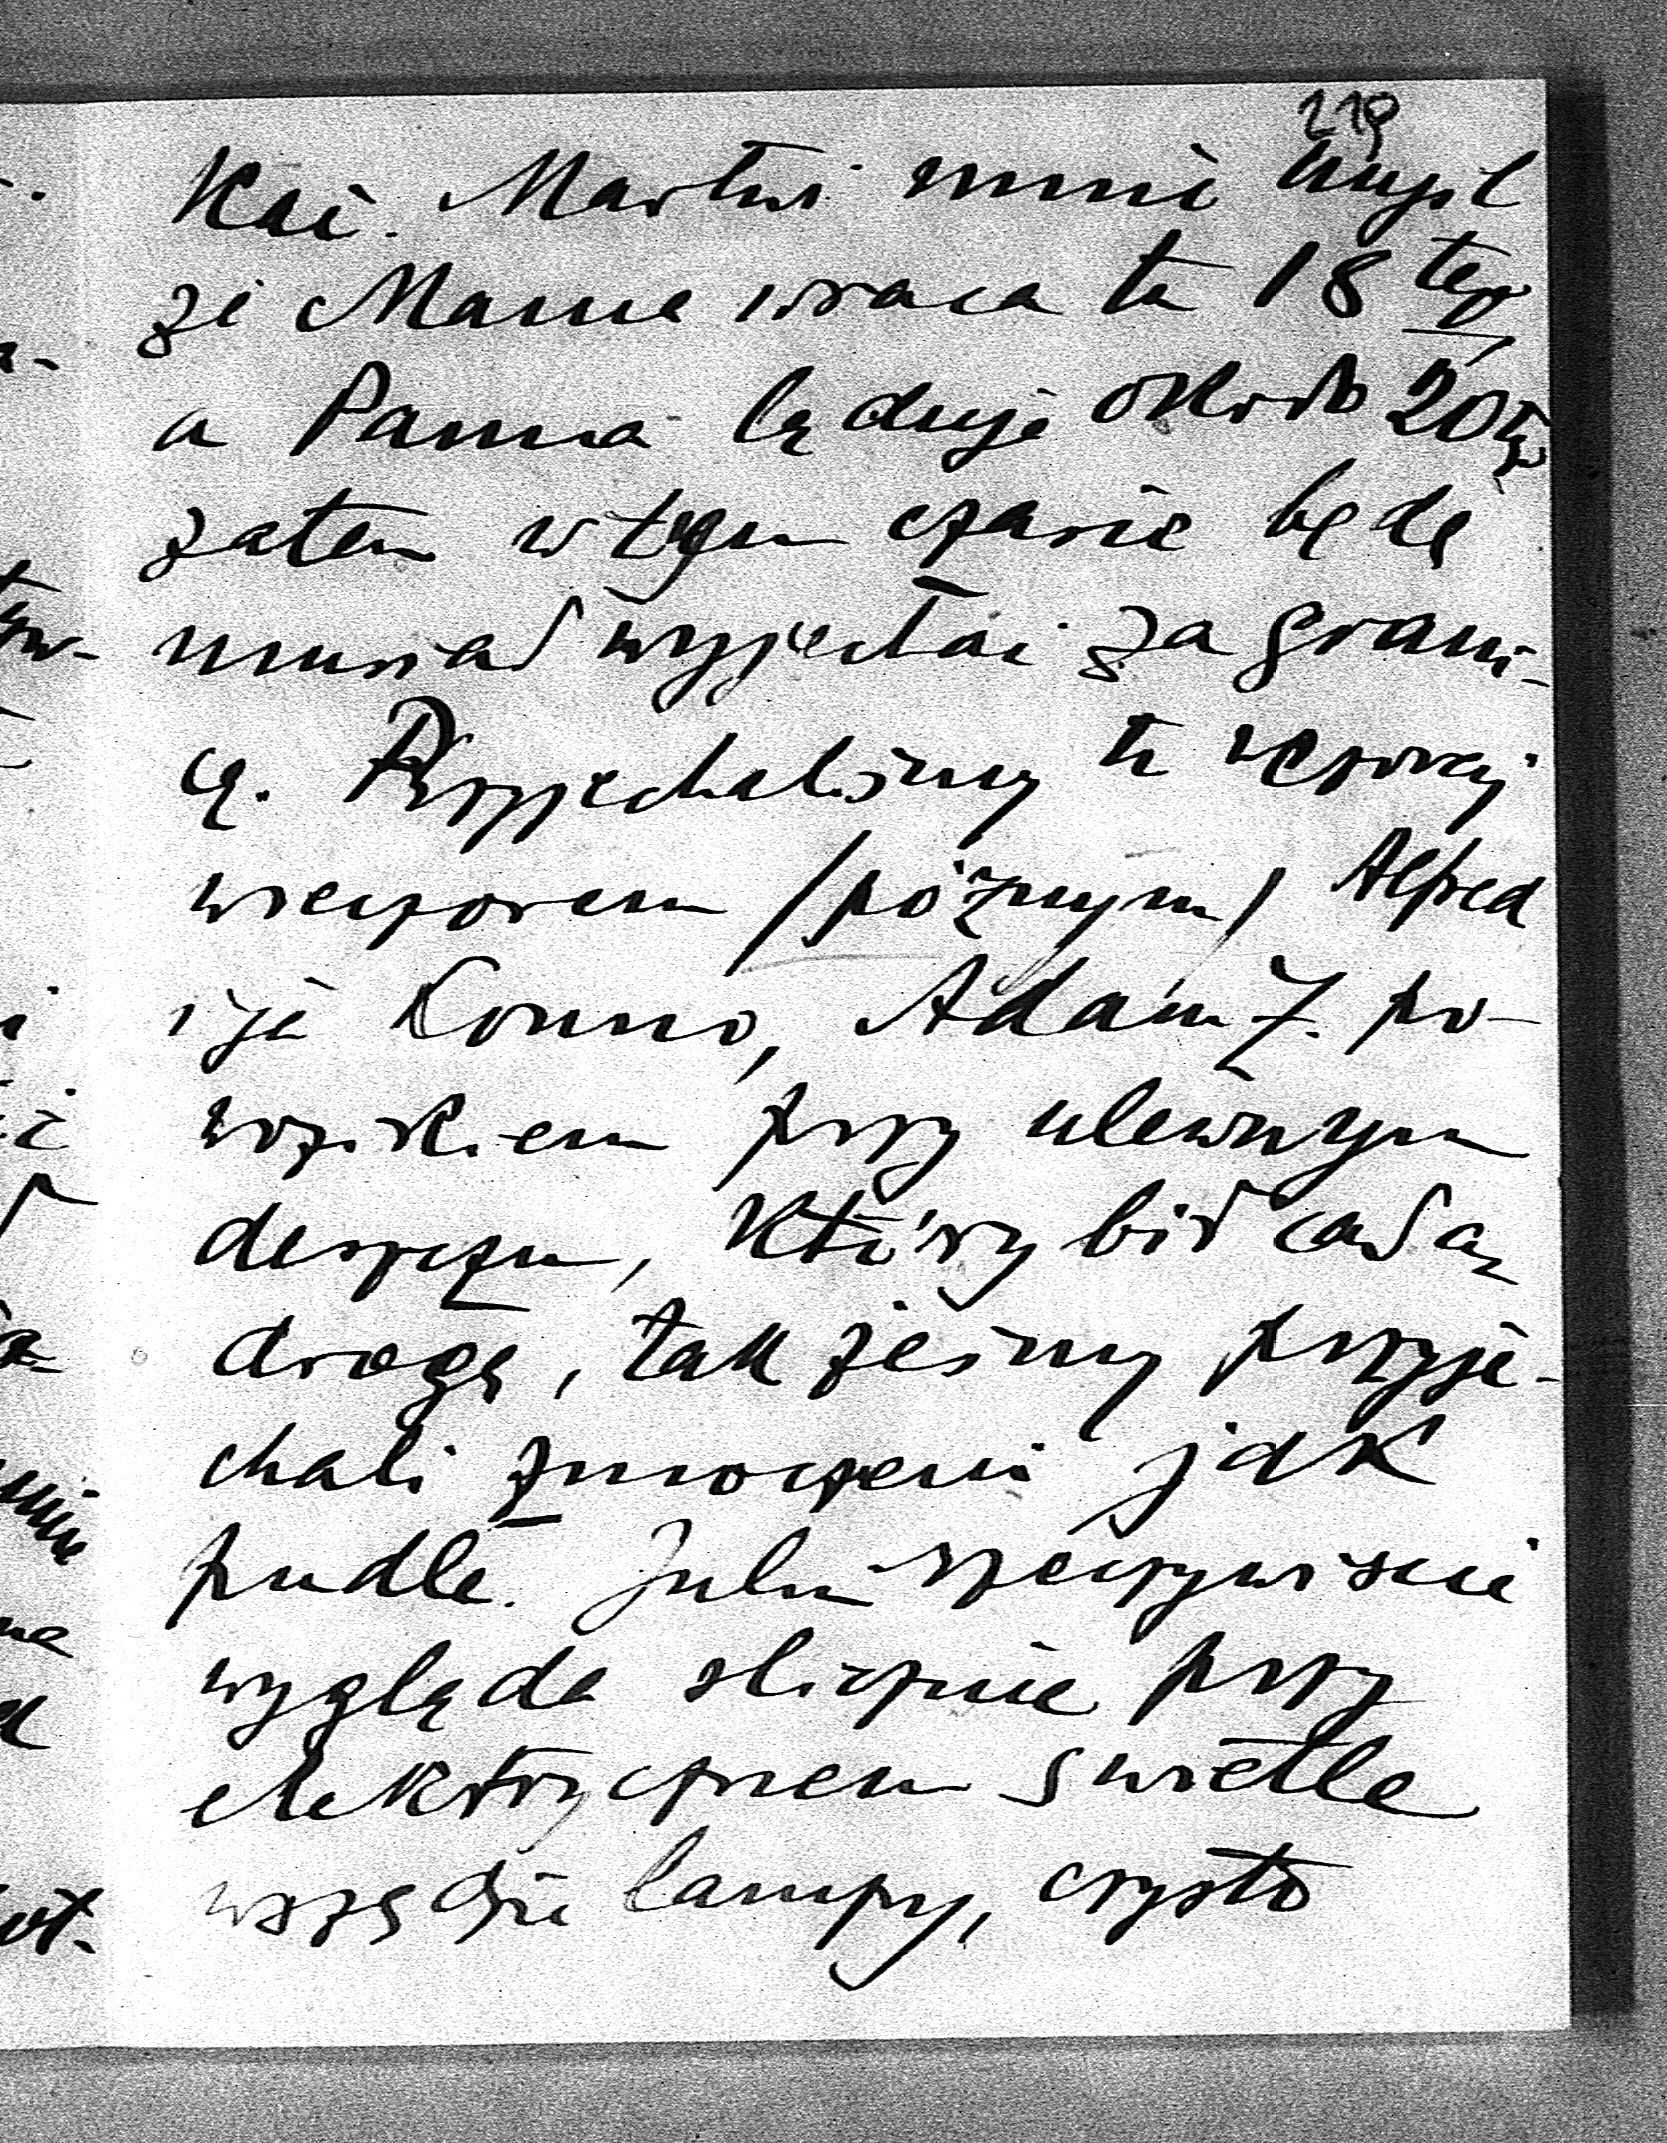 219
kać. Martwi mnie myśl
że Mama wraca tu 18 tego
a Panna ląduje około 20 tego
zatem w tym czasie będę
musiał wyjechać za grani-
cę. Przyjechaliśmy tu wczoraj
wieczorem (późnym) Alfred
i ja konno, Adam Z. po-
wozikiem przy ulewnym
deszczu, który bił całą
drogę, tak żeśmy przyje-
chali zmoczeni jak
pudle. Julin rzeczywiscie
wygląda slicznie przy
elektrycznem swietle
wszędzie lampy, czysto